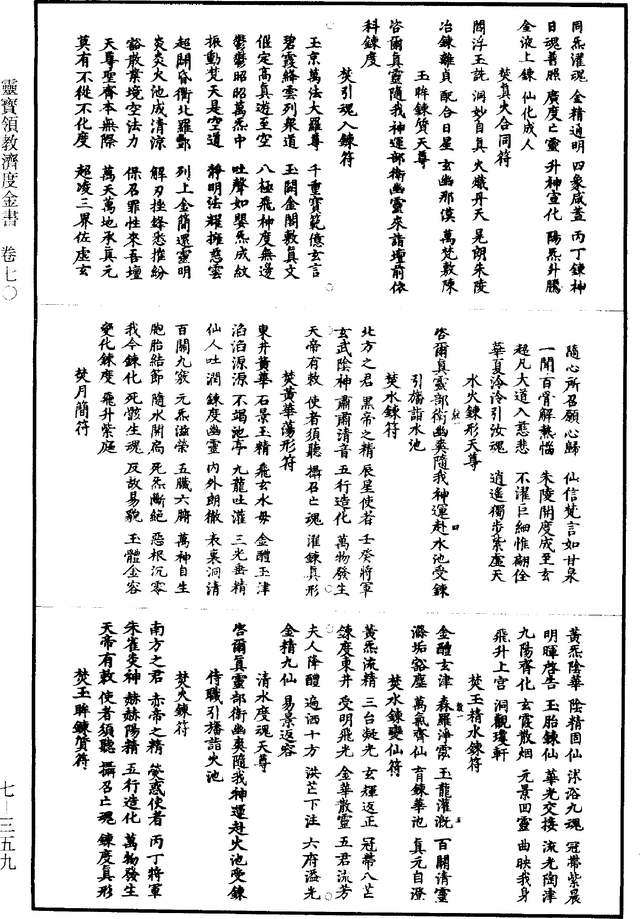 靈寶領教濟度金書 卷七〇
七－三五九
同炁濯魂 金精通明 四象咸蓋 丙丁鍊神
日魂普照 廣度之靈 升神宣化 陽炁升騰
金液上鍊 仙化成人
焚真火合同符
閻浮玉詵 洞妙自真 火熾丹天 晃朗朱陵
冶鍊離真 配合日星 玄幽那漠 萬梵敷陳
玉眸鍊質天尊
咨爾真靈隨我神運部衛幽靈來詣壇前依
科鍊度
焚引魂入鍊符
玉京萬法大羅尊 千重寶範億玄言
碧霞絳雲列衆道 玉闕金閣數真文
催定高真遊至空 八極飛神度無邊
鬱鬱昭昭萬炁中 吐聲如嬰炁成紋
振動梵天是空道 靜明法耀擁慈雲
超開昏衢北羅酆 列上金簡還靈明
炎炎火池成清涼 解刃挫鋒悉摧紛
豁散業境空法力 保召罪性來吾壇
天尊聖齊本無際 萬天萬地承真元
莫有不從不化度 超凌三界佐虛玄
隨心所召願心歸 仙信梵言如甘泉
一聞百骨解熱惱 朱陵開度成至玄
超凡大道入慈悲 不濯巨細惟翩佺
華夏泠泠引汝魂 逍遙獨步紫虛天
水火鍊形天尊
咨爾真靈部衛幽爽隨我神運赴水池受鍊
引旛詣水池
焚水鍊符
北方之君 黑帝之精 辰星使者 壬癸將軍
玄武陰神 肅肅清音 五行造化 萬物發生
天帝有敕 使者須聽 攝召亡魂 濯鍊真形
焚黃華蕩形符
東井黃華 石景玉精 飛玄水母 金醴玉津
滔滔源源 不竭池亭 九龍吐灌 三光垂精
仙人吐潤 鍊度幽靈 內外朗徹 表裏洞清
百關九竅 元炁滋榮 五臟六腑 萬神自生
胞胎結節 隨水開扃 死炁斷絕 惡根沉零
我今鍊化 死骸生魂 反故易貌 玉體金容
變化鍊度 飛升紫庭
焚月簡符
黃炁陰華 陰精固仙 沭浴九魂 冠帶紫晨
明暉啓告 玉胎鍊仙 華光交接 流光陶津
九陽齊化 玄霞散烟 元景四靈 曲映我身
飛升上宮 洞觀瓊軒
焚玉精水鍊符
金醴玄津 森羅淨霞 玉龍灌溉 百關清靈
滌垢豁塵 萬氣齊仙 育鍊華池 真元自澄
焚水鍊變仙符
黃炁流精 三台凝光 玄輝返正 冠帶八芒
鍊度東井 受明飛光 金華散靈 五君流芳
夫人降醴 遍洒十方 洪芒下注 六府溢光
金精九仙 易景返容
清水度魂天尊
咨爾真靈部衛幽爽隨我神運赴火池受鍊
侍職引旛詣火池
焚火鍊符
南方之君 赤帝之精 熒惑使者 丙丁將軍
朱雀炎神 赫赫陽精 五行造化 萬物發生
天帝有敕 使者須聽 攝召亡魂 鍊度真形
焚玉眸鍊質符